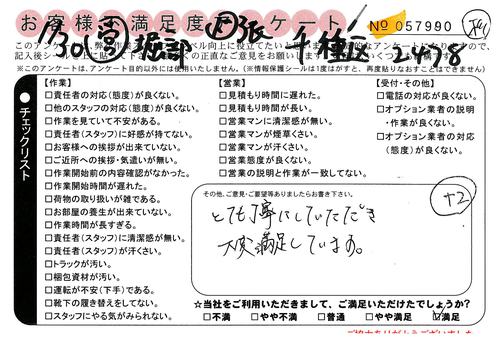 お客様不満足度アンケート
No 057990
1/30
2478
※このアンケートは、アンケート目的以外には使用いたしません。(※情報保護シールは1度はがすと、再度貼りなおすことはできません)
●チェックリスト
【作業】
□責任者の対応(態度)が良くない。
□他のスタッフの対応(態度)が良くない。
□作業を見ていて不安がある。
□責任者(スタッフ)に好感が持てない。
□お客様への挨拶が出来ていない。
□ご近所への挨拶・気遣いが無い。
□作業開始前の内容確認がなかった。
□作業開始時間が遅れた。
□荷物の取り扱いが雑である。
□お部屋の養生が出来ていない。
□作業時間が長すぎる。
□責任者(スタッフ)に清潔感が無い。
□責任者(スタッフ)が汗くさい。
□トラックが汚い。
□梱包資材が汚い。
□運転が不安(下手)である。
□靴下の履き替えをしてない。
□スタッフにやる気がみられない。
【営業】
□見積もり時間に遅れた。
□見積もり時間が長い。
□営業マンに清潔感が無い。
□営業マンが煙草くさい。
□営業マンが汗くさい。
□営業態度が良くない。
□営業の説明と作業が一致してない。
【受付・その他】
□電話の対応が良くない。
□オプション業者の説明
・作業が良くない。
□オプション業者の対応
(態度)が良くない。
その他、ご意見・ご要望等ありましたらお書き下さい。
+2
とても丁寧にしていただき
大変満足しています。
☆当社をご利用いただきまして、ご満足いただけたでしょうか?
□不満 □やや不満 □普通 □やや満足 ☑満足
ご協力ありがとうございました